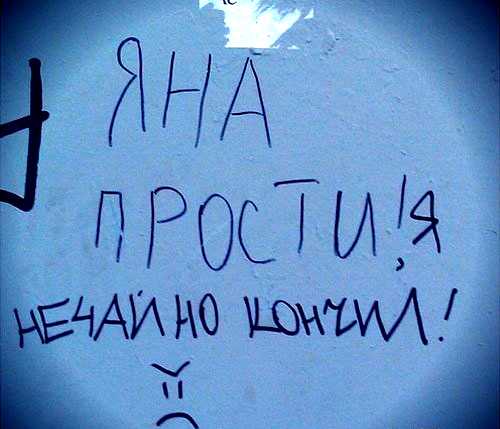 ЯНА
ПРОСТИ! Я
НЕЧАЙНО КОНЧИЛ!